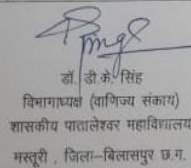 डॉ. डी.के. सिंह
विभागाध्यक्ष (वाणिज्य संकाय)
शासकीय पातालेश्वर महाविद्यालय
मस्तूरी , जिला–बिलासपुर छ.ग.